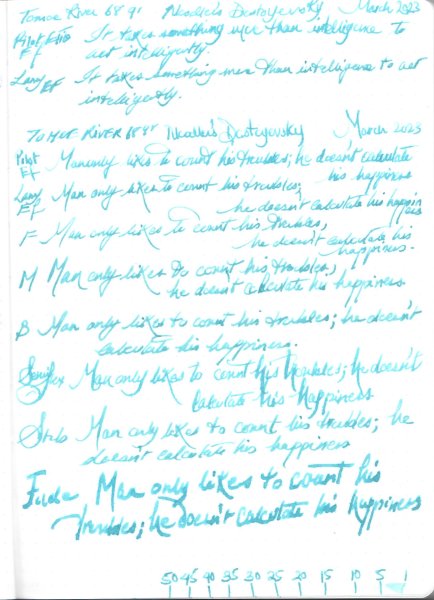 Tomoe River 68 gr Noodler's Dostoyevsky March 2023
Pilot It takes something more than intelligence to
EF act intelligently.
Lamy EF It takes something more than intelligence to act
intelligently.
TOMOE RIVER 68 gr Noodlers Dostoyevsky March 2023
Pilot Man only likes to count his troubles; he doesn't calculate
EF his happiness
Lamy Man only likes to count his troubles;
EF he doesn't calculate his happiness
F Man only likes to count his troubles,
he doesn't calculate his
happiness.
M Man only likes to count his troubles,
he doesn't calculate his happiness
B Man only likes to count his troubles; he doesn't
calculate his happiness.
Semiflex Man only likes to count his troubles; he doesn't
calculate his happiness
Stub Man only likes to count his troubles; he
doesn't calculate his happiness
Fude Man only likes to count his
troubles; he doesn't calculate his happiness
50 45 40 35 30 25 20 15 10 5 1